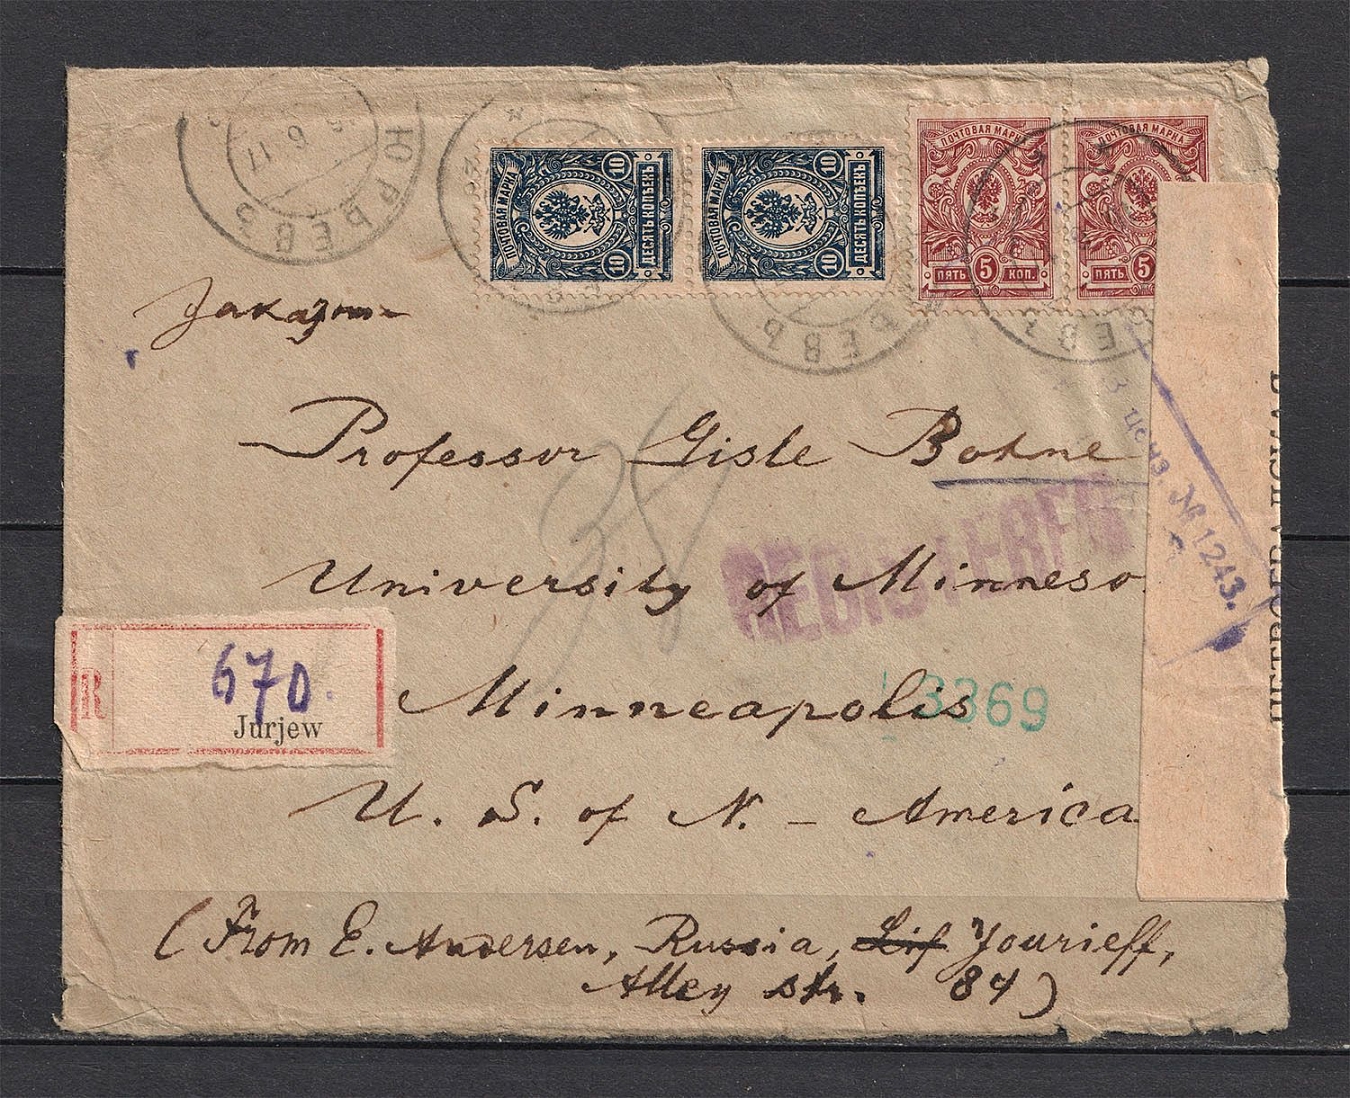 ЮРЬЕВЪ
6 17
ПОЧТОВАЯ МАРКА
10 10
ДЕСЯТЬ КОПѢЕКЪ
ПОЧТОВАЯ МАРКА
10 10
ДЕСЯТЬ КОПѢЕКЪ
ПОЧТОВАЯ МАРКА
ПЯТЬ 5 КОП.
ПОЧТОВАЯ МАРКА
ПЯТЬ 5
ЬЕВЪ
ЕВЪ
Professor Gisle Bohne
38
REGISTERED
University of Minneso
№ 1243.
R
670.
Jurjew
Minneapolis
3369
U. S. of N. - America
(From E. Andersen, Russia, Lif Yourieff,
Alley str. 84)